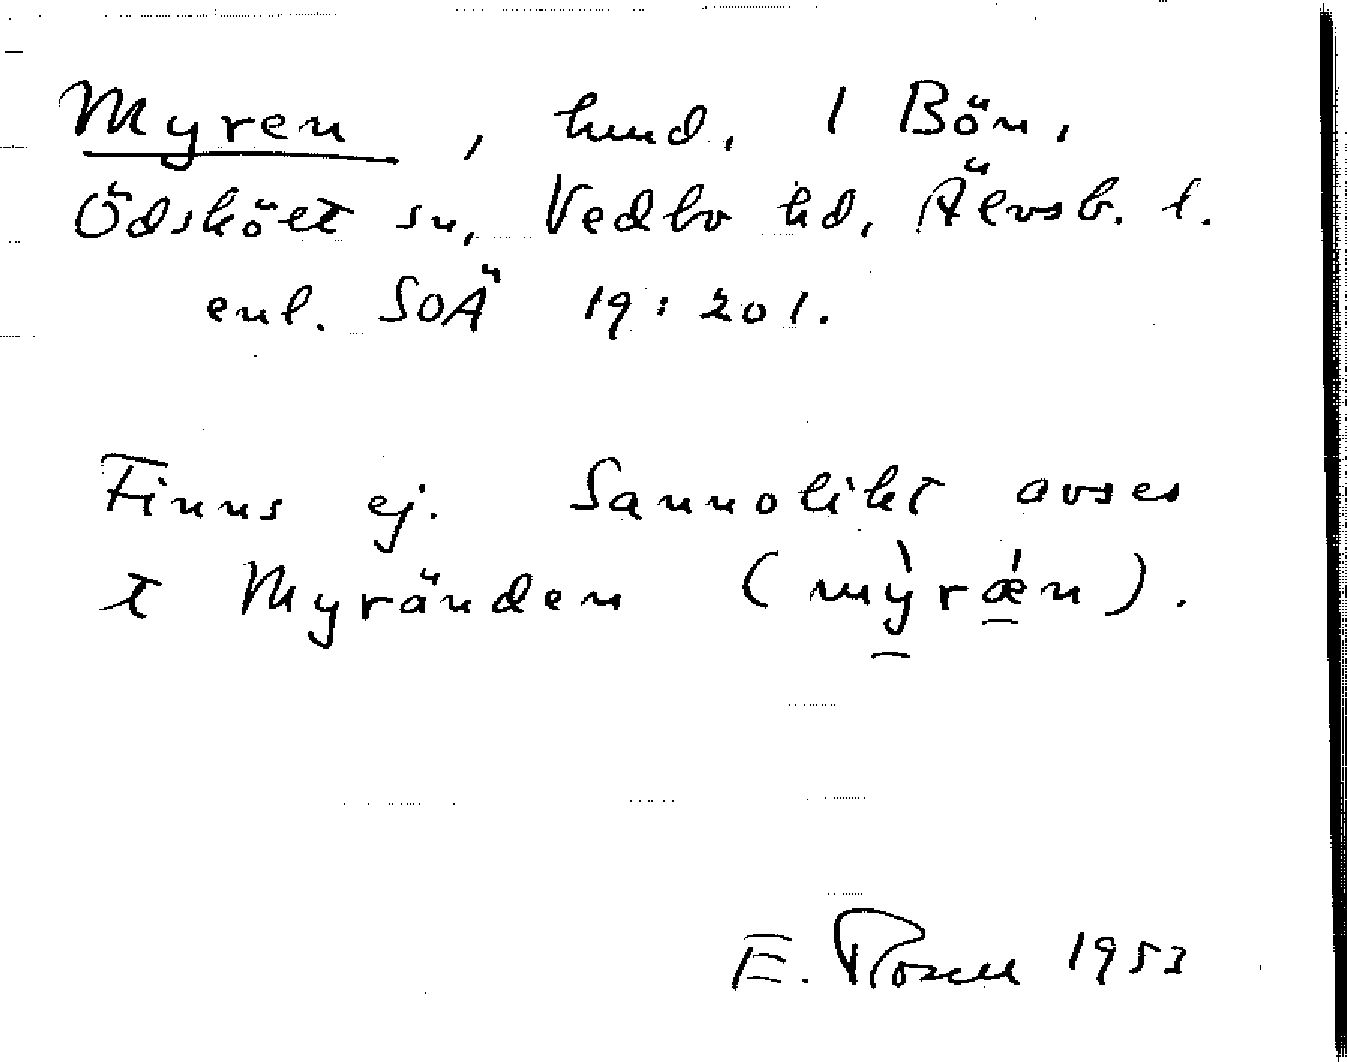 Myren, hmd, 1 Bön,
Ödskölt sn, Vedbo hd, Älvsb. l.
enl. SOÄ 19:201.
Finns ej. Sannolikt avses
t Myränden (mỳrǽn).
E. Rosell 1953